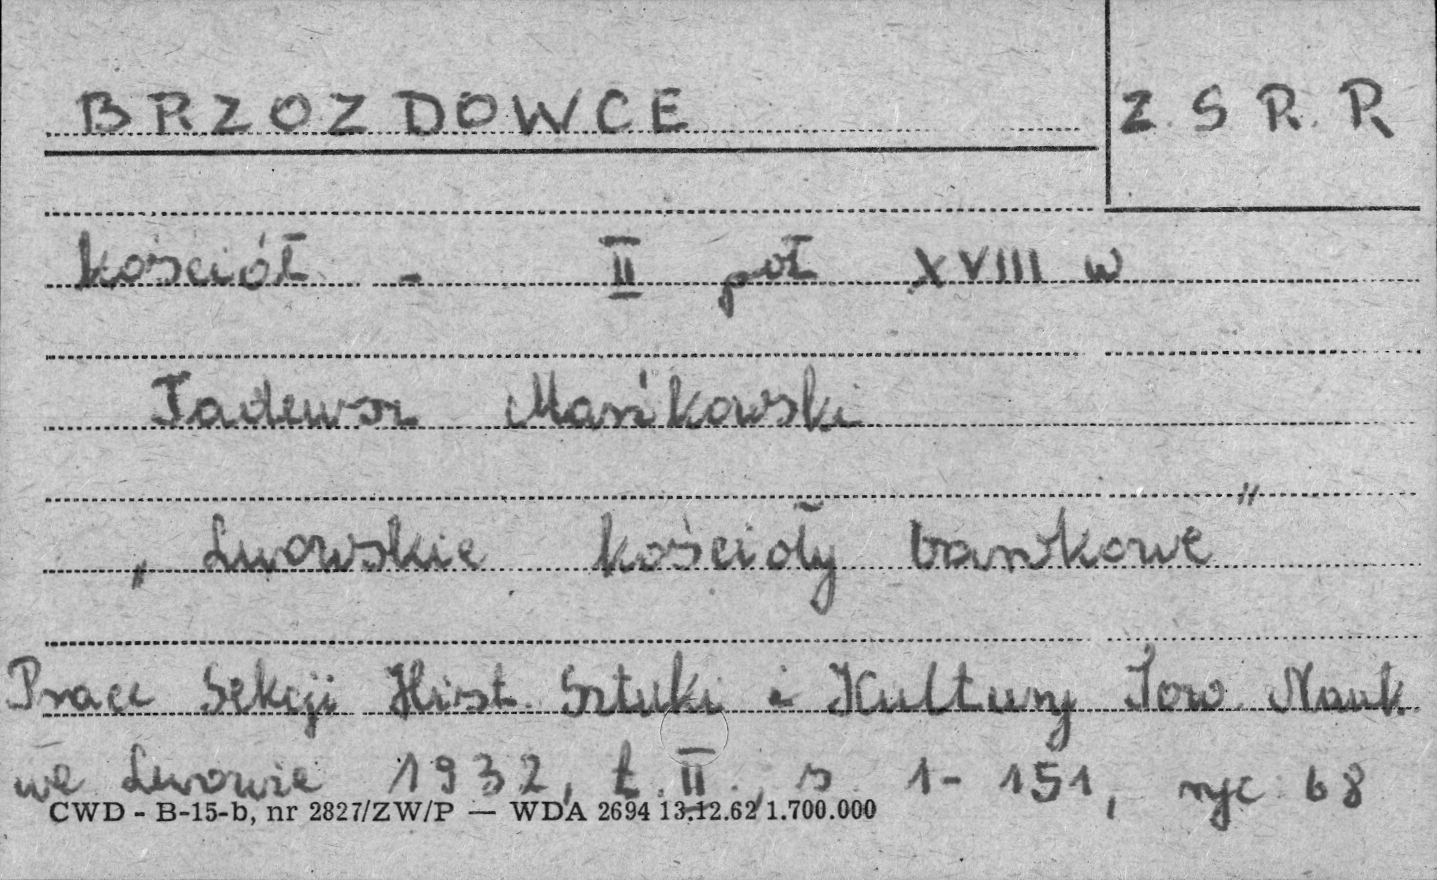 BRZOZDOWCE
Z.S.R.R
kościół - II poł XVIII w
Tadeusz Mańkowski
„Lwowskie kościoły barokowe"
Prace Sekcji Hist. Sztuki i Kultury Tow. Nauk.
we Lwowie 1932, t. II., s. 1-151, ryc 68
CWD - B-15-b, nr 2827/ZW/P — WDA 2694 13.12.62 1.700.000